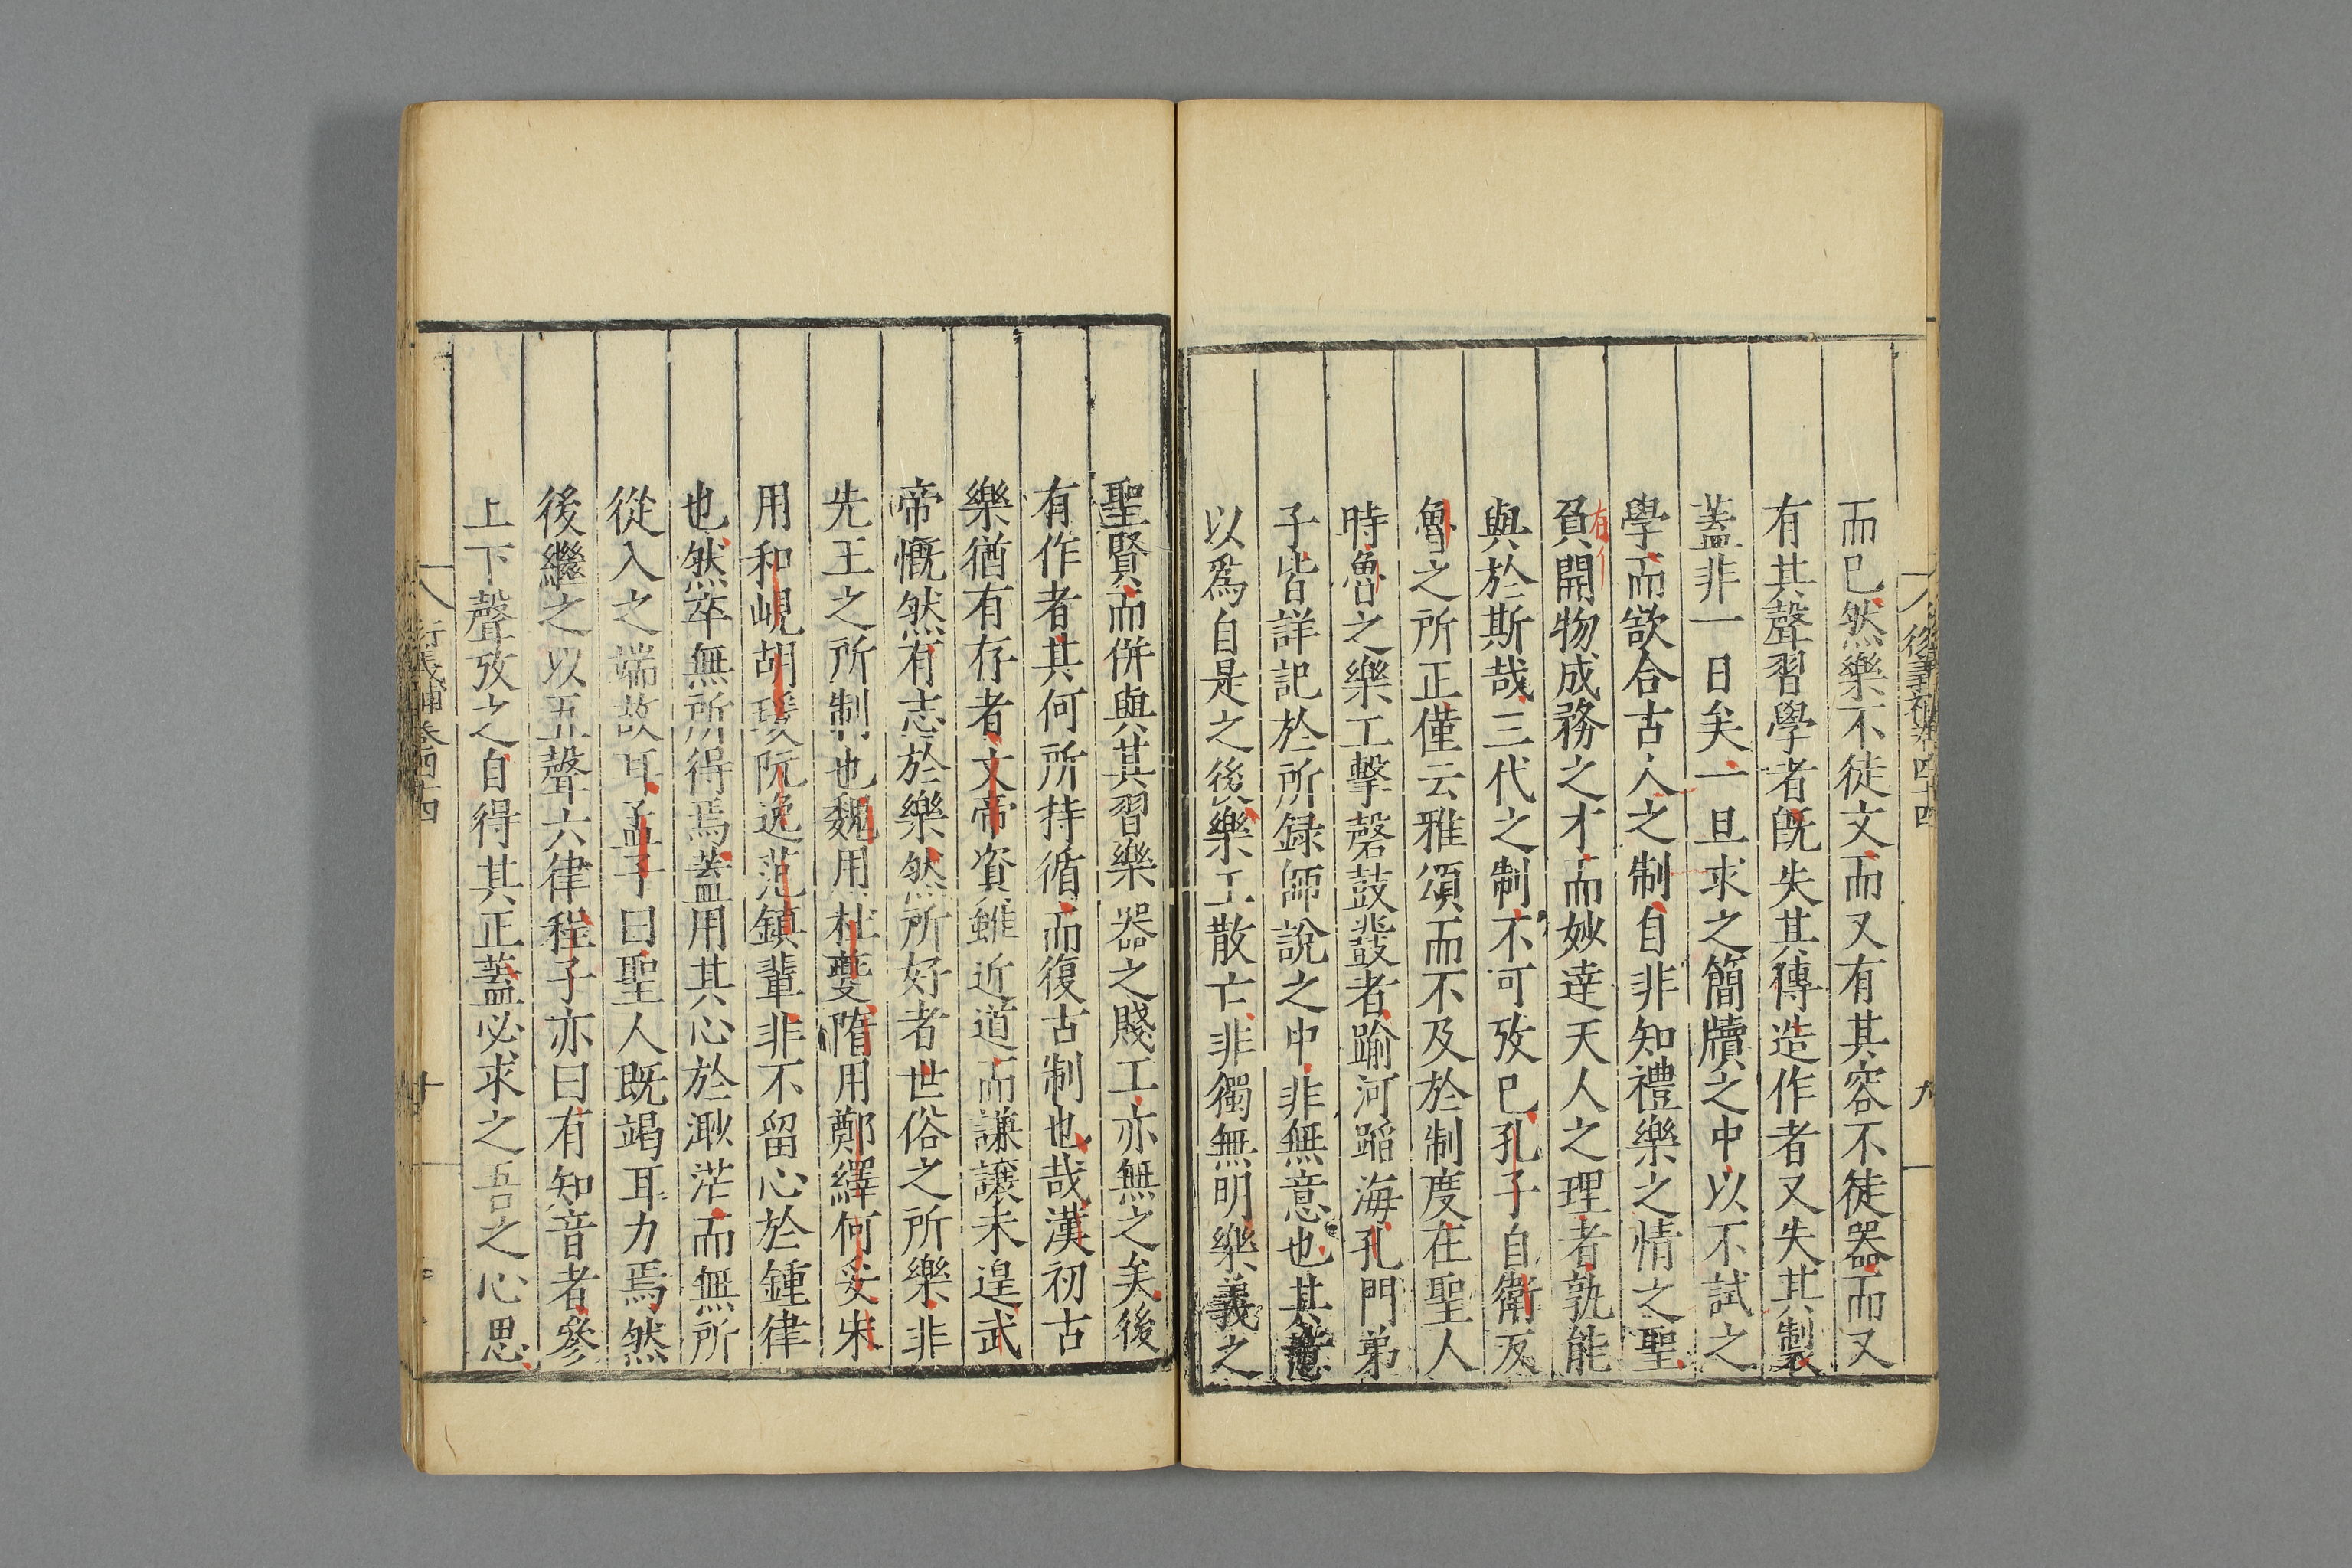 而已然樂不徒文而又有其容不徒器而又
有其聲習學者旣失其傳造作者又失其製
蓋非一日矣一旦求之簡牘之中以不試之
學而欲合古人之制自非知禮樂之情之聖
負開物成務之才而妙達天人之理者孰能
有
與於斯哉三代之制不可攷已孔子自衛反
魯之所正僅云雅頌而不及於制度在聖人
時魯之樂工擊磬鼓鼗者踰河蹈海孔門弟
子皆詳記於所録師說之中非無意也其意
以爲自是之後樂工散亡非獨無明樂義之
聖賢而併與其習樂器之賤工亦無之矣後
有作者其何所持循而復古制也哉漢初古
樂猶有存者文帝資雖近道而謙讓未遑武
帝慨然有志於樂然所好者世俗之所樂非
先王之所制也魏用杜夔隋用鄭繹何妥宋
用和峴胡瑗阮逸范鎮輩非不留心於鍾律
也然卒無所得焉蓋用其心於渺茫而無所
從入之端故耳孟子曰聖人既竭耳力焉然
後繼之以五聲六律程子亦曰有知音者參
上下聲攷之自得其正蓋必求之吾之心思
行義補卷四十四
十
後義補卷四十四
九